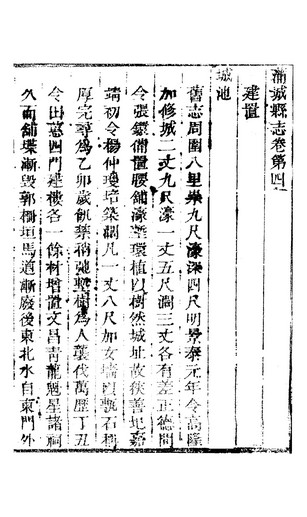 蒲城縣志卷第四
建置
城池
舊志周圍八里築九尺濠深四尺明景泰元年令高隆
加修城二丈九尺濠一丈五尺濶三丈各有差正德間
令張備置腰鋪濠塹環植以樹然城址故狹善地嘉
靖初令楊仲瓊培築濶凡一丈八尺加女墻以甎石稱
厚完尋為乙卯歲飢稍弛塹樹為人襲伐萬歷丁丑
令田蕙四門建樓各一餘材增置文昌青龍魁星諸祠
久而鋪堞漸毀郭垣馬道漸廢後東北水自東門外